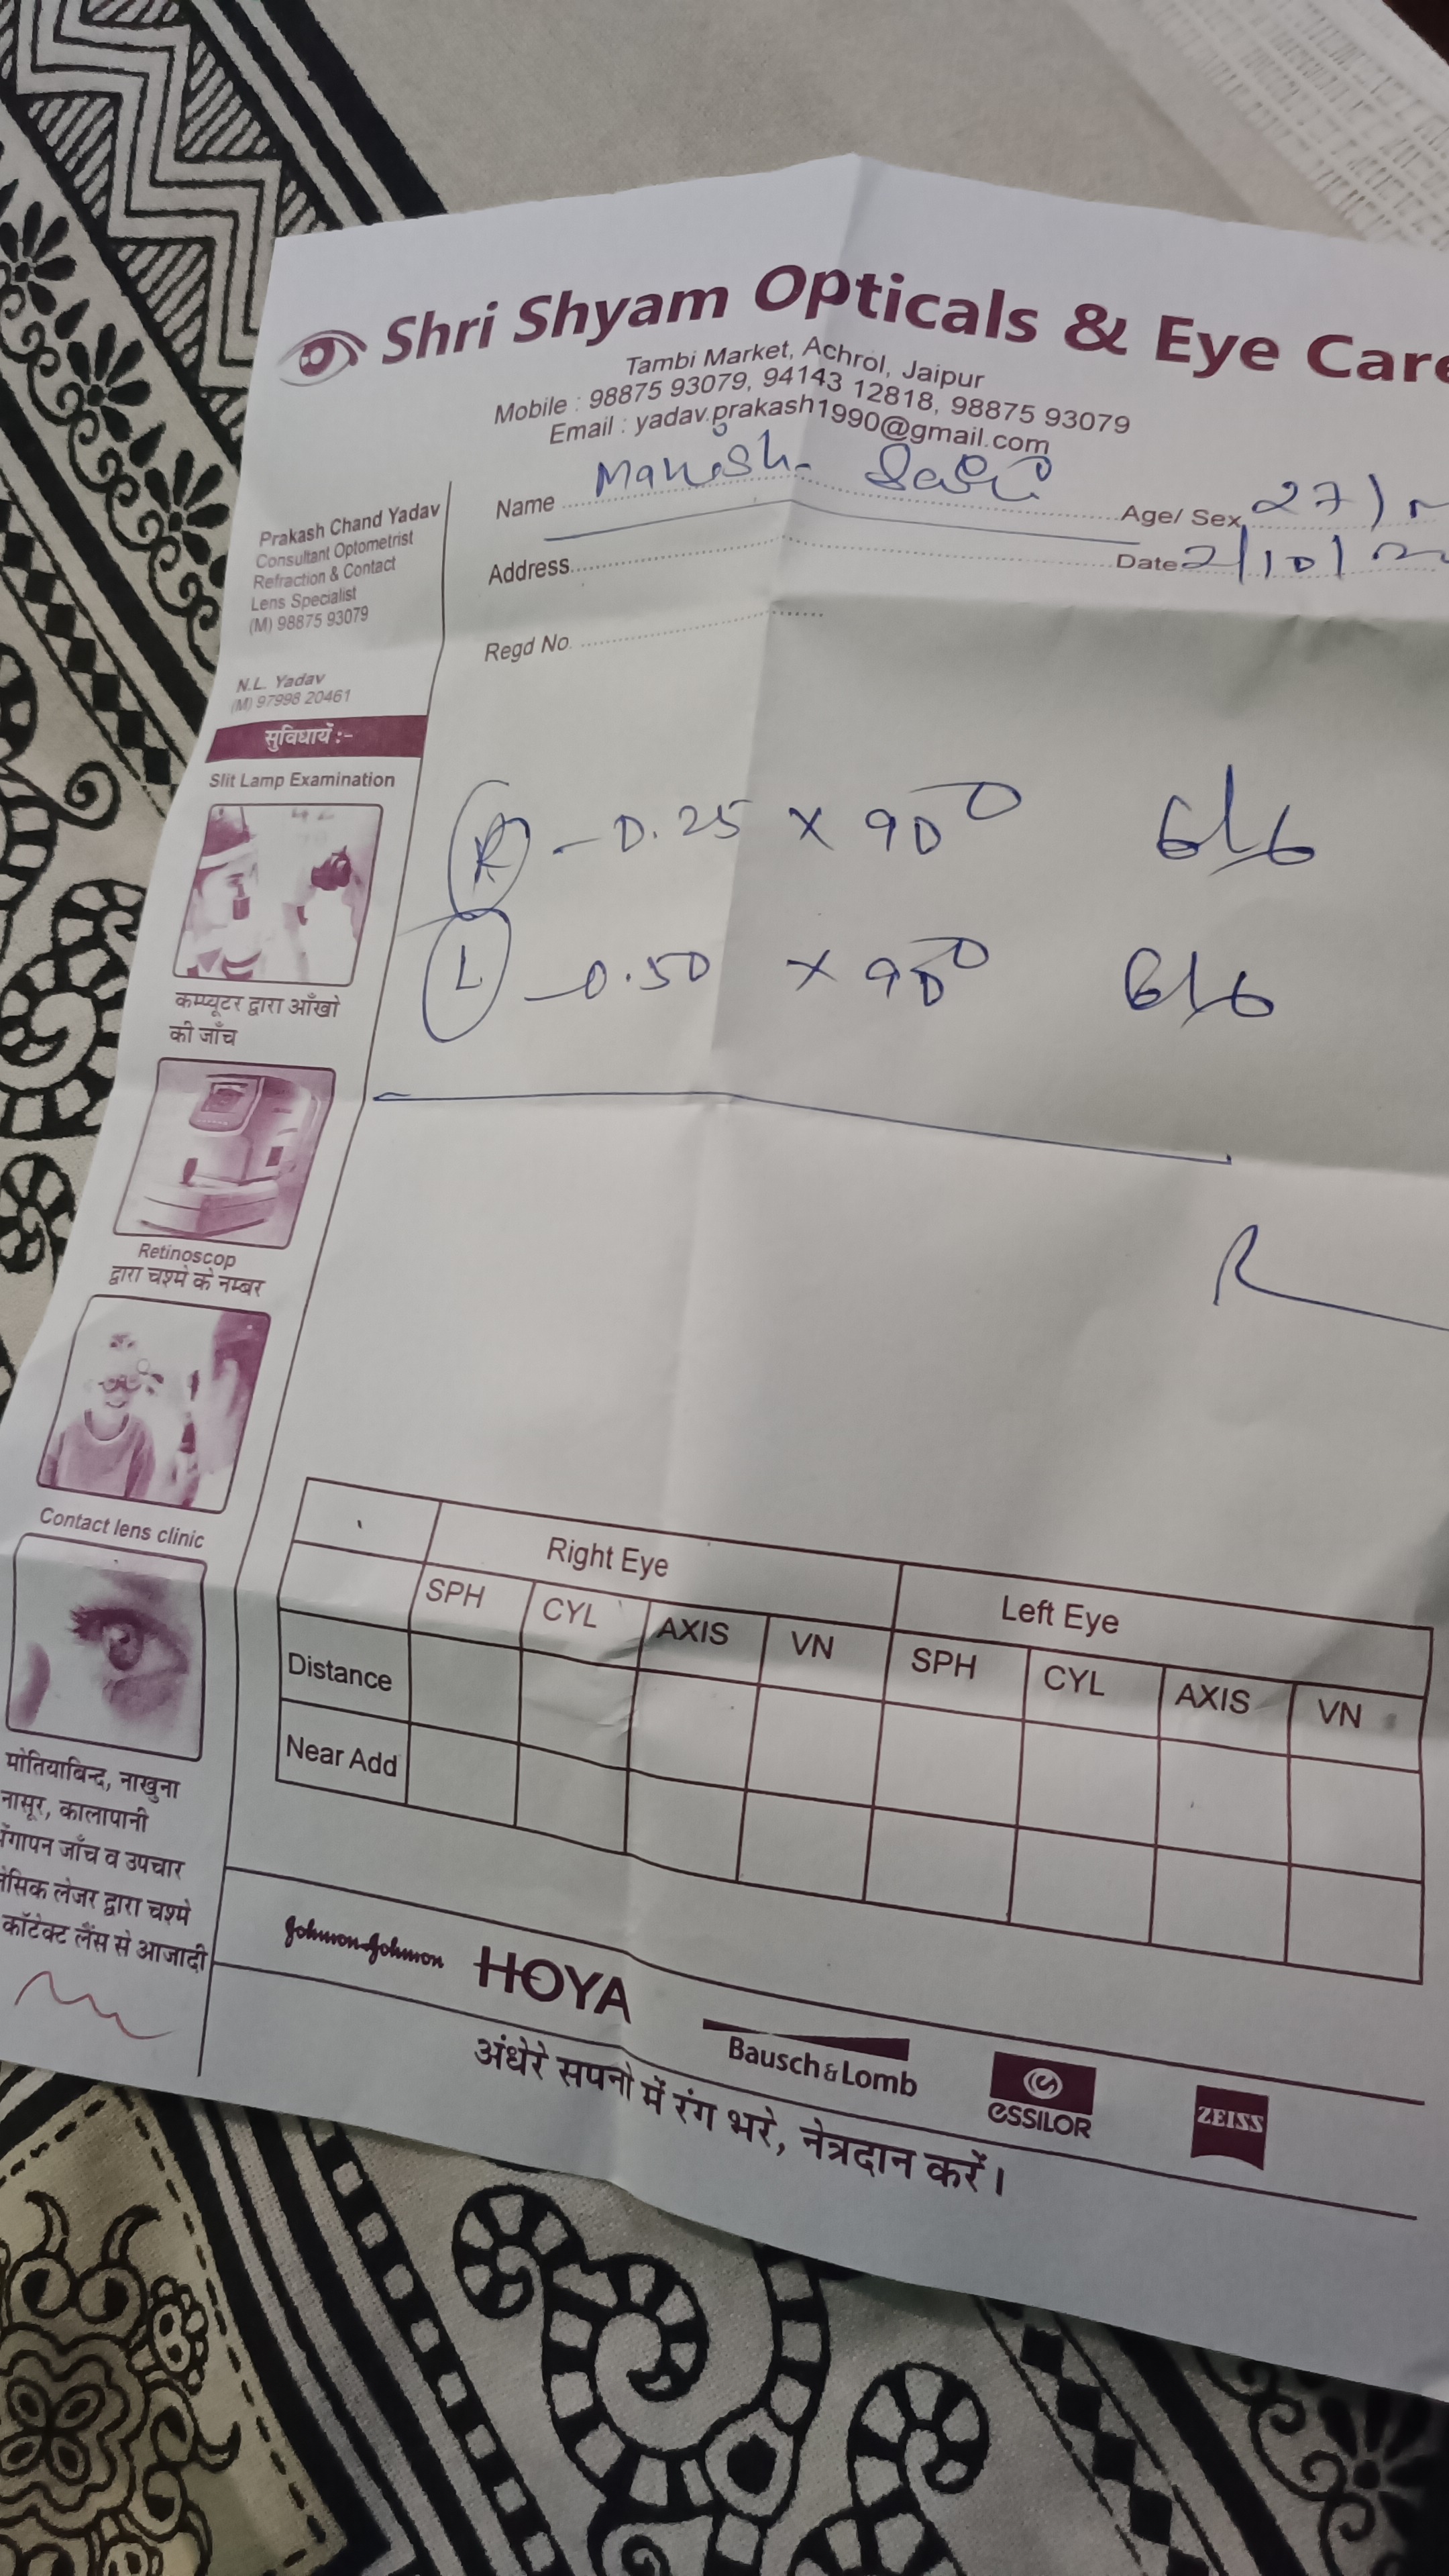 Shri Shyam Opticals & Eye Care
Tambi Market, Achrol, Jaipur
Mobile : 98875 93079, 94143 12818, 98875 93079
Email : yadav.prakash1990@gmail.com
Name Manish Age/ Sex 27)
Address Date 2/10/
Regd No.
Prakash Chand Yadav
Consultant Optometrist
Refraction & Contact
Lens Specialist
(M) 98875 93079
N.L. Yadav
(M) 97998 20461
सुविधायें :-
Slit Lamp Examination
कम्प्यूटर द्वारा आँखो
की जाँच
Retinoscop
द्वारा चश्मे के नम्बर
Contact lens clinic
मोतियाबिन्द, नाखुना
नासूर, कालापानी
जाँच व उपचार
लेजर द्वारा चश्मे
कॉटेक्ट लैंस से आजादी
R -0.25 x 90° 6/6
L -0.50 x 90° 6/6
Right Eye Left Eye
SPH CYL AXIS VN SPH CYL AXIS VN
Distance
Near Add
Johnson & Johnson HOYA Bausch & Lomb essilor ZEISS
अंधेरे सपनो में रंग भरे, नेत्रदान करें।